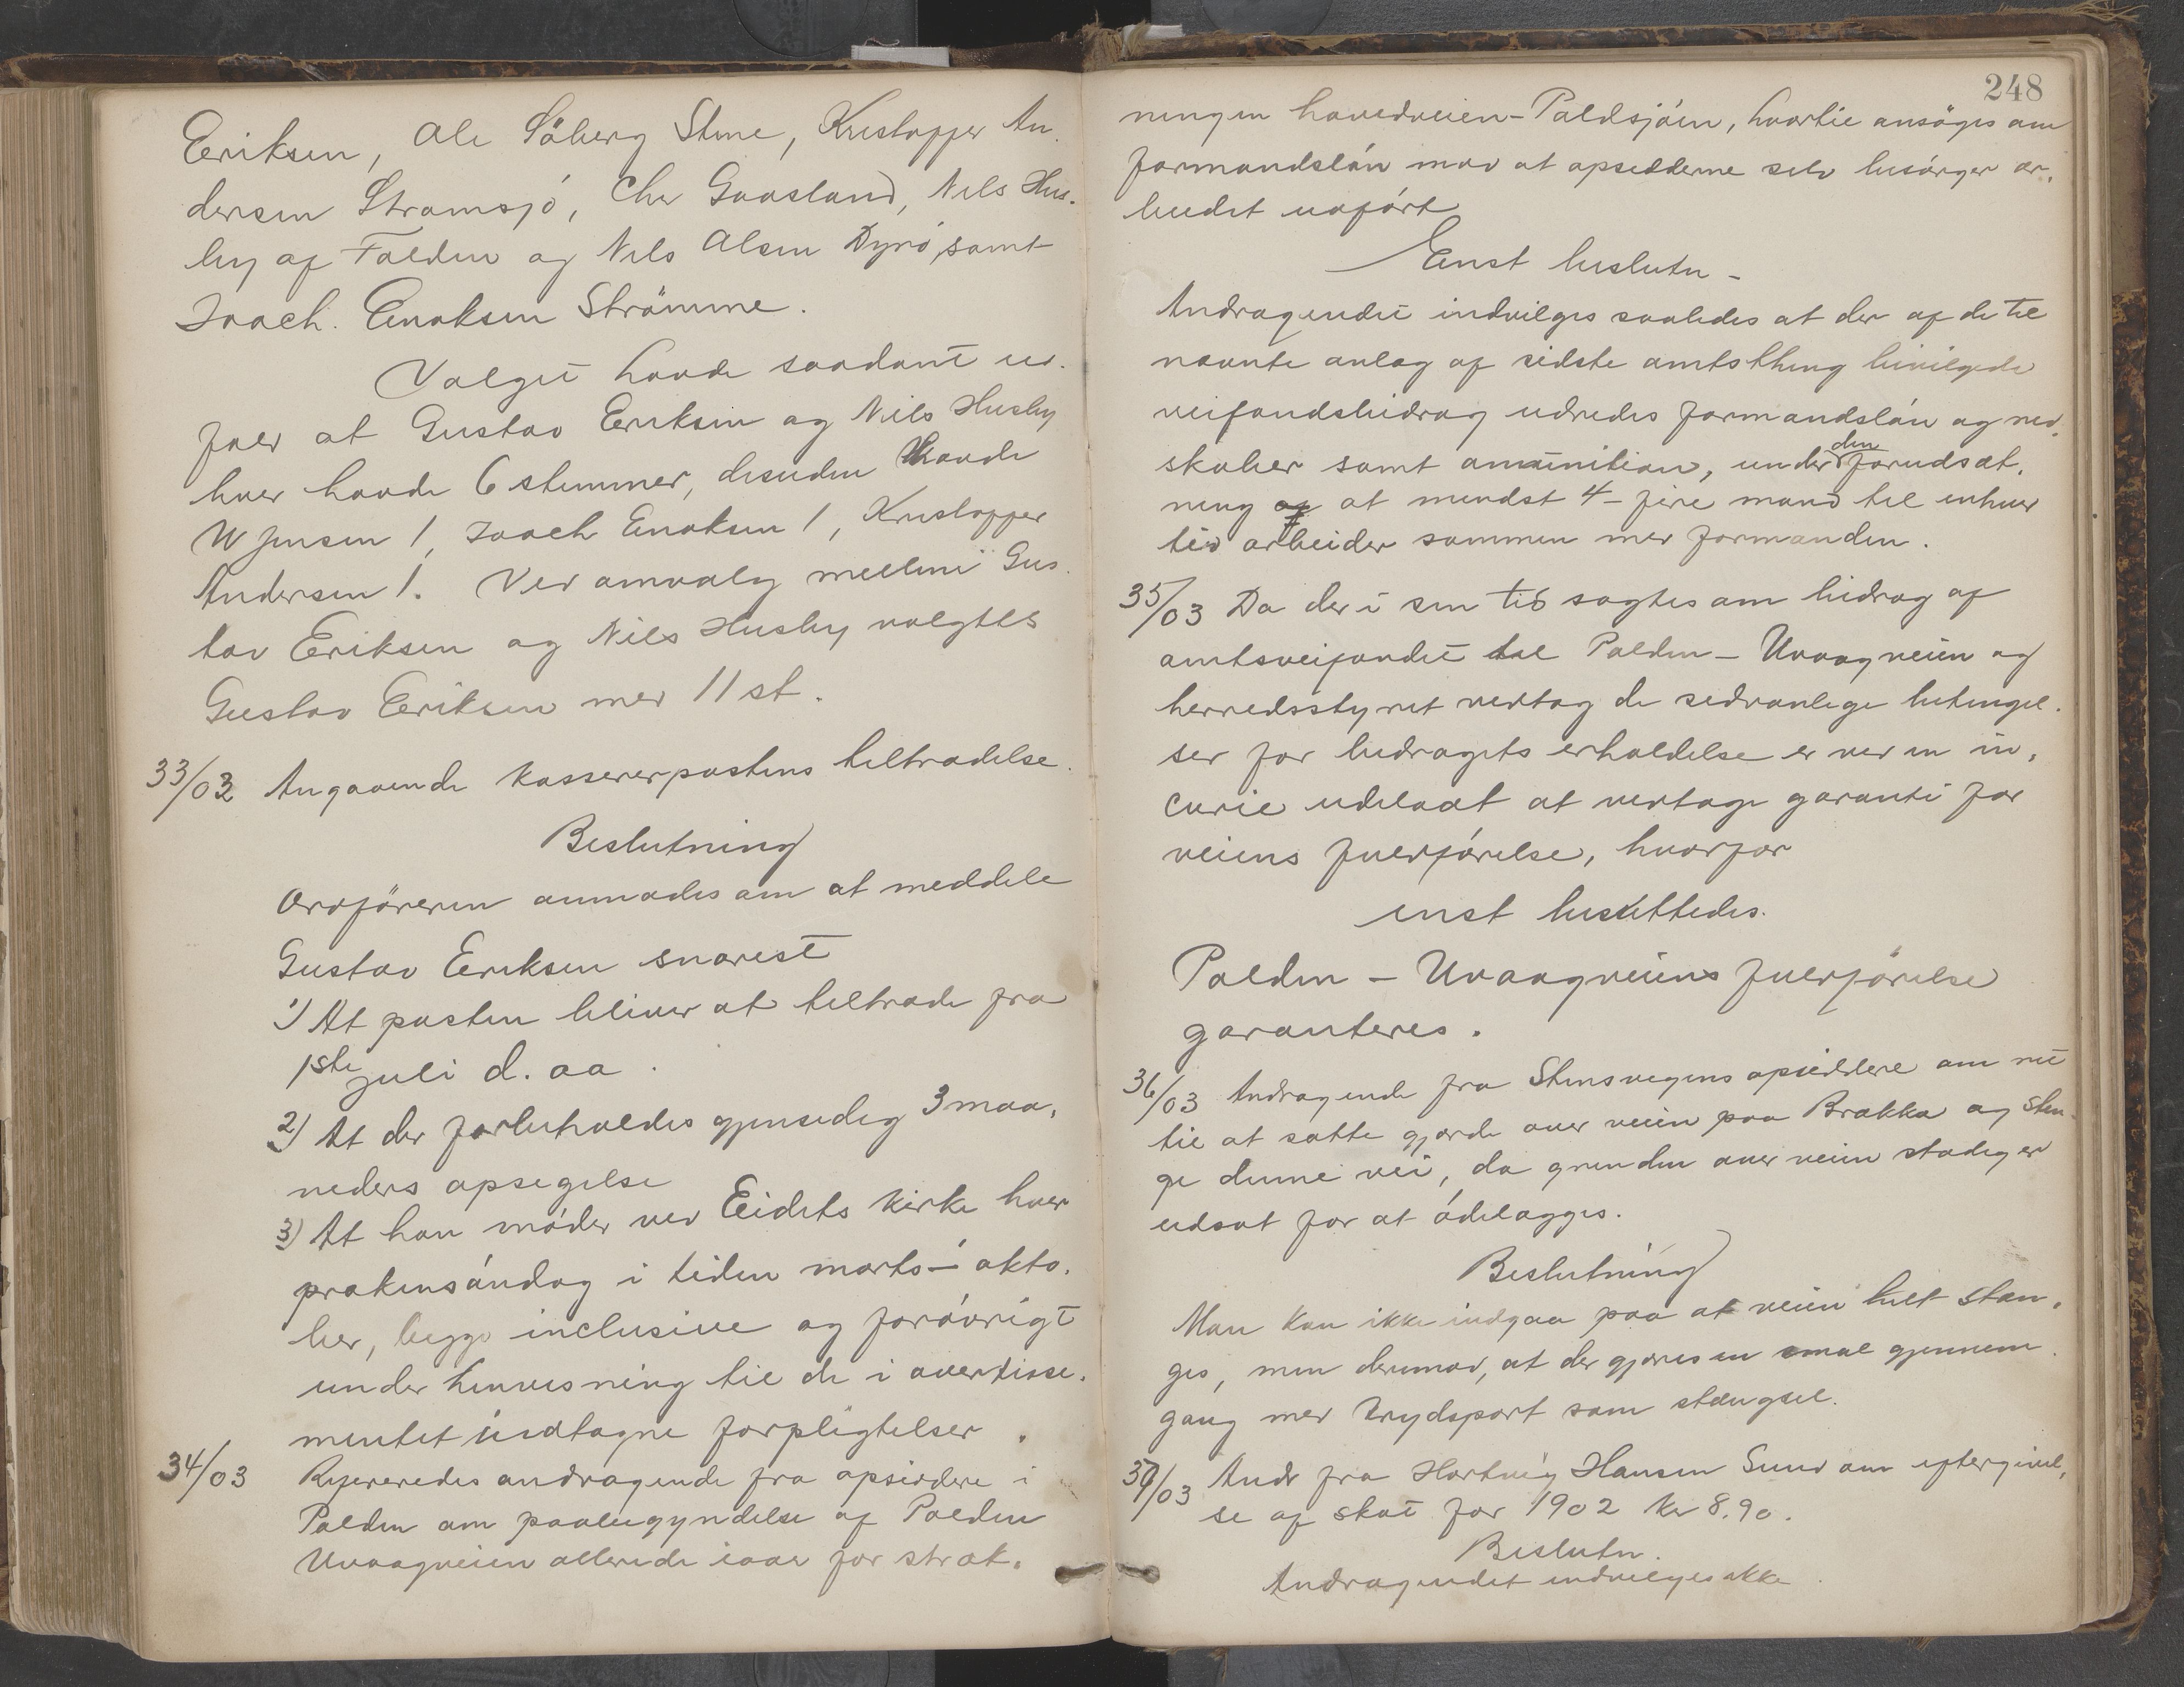 Eriksen, Ole Söberg Stene, Kristoffer An-
dersen Stramsjö, Chr Gaasland, Nils Hus-
by af Folden og Nils Olsen Dyrö, samt
Joach. Enoksen Strömme.
Valget havde saadant ud-
fald at Gustav Eriksen og Nils Husby
hver havde 6 stemmer, desuden havde
W Jensen 1, Joach Enoksen 1, Kristoffer
Andersen 1. Ved omvalg mellem Gus-
tav Eriksen og Nils Husby valgtes
Gustav Eriksen med 11 st.
33/03 Angaaende kassererpostens tiltrædelse.
Beslutning
Ordföreren anmodes om at meddele
Gustav Eriksen snarest
1) At posten bliver at tiltræde fra
1ste juli d. aa.
2) At der forbeholdes gjensedig 3 maa-
neders opsigelse
3) At han möder ved Eidets kirke hver
prækensöndag i tiden marts - okto-
ber, begge inclusive og forövrigt
under henvisning til de i avertisse-
mentet indtagne forpligtelser.
34/03 Refereredes andragende fra opsiddere i
Polden om paabegyndelse af Polden
Uvaagveien allerede iaar for stræk-
248
ningen hovedveien - Poldsjöen, hvortil ansöges om
formandslön mod at opsidderne selv besörger ar-
beidet udfört
Enst beslutn -
Andragendet indvilges saaledes at der af de til
nævnte anlæg af sidste amtsthing bevilgede
veifondsbidrag udredes formandslön og red-
skaber samt amunition, under den forudsæt-
ning af at mindst 4 - fire mand til enhver
tid arbeider sammen med formanden.
35/03 Da der i sin tid sögtes om bidrag af
amtsveifondet til Polden - Uvaagveien og
herredsstyret vedtog de sedvanlige betingel-
ser for bidragets erholdelse er ved en in-
curie udeladt at vedtage garanti for
veiens fuldförelse, hvorfor
enst besluttedes.
Polden - Uvaagveiens fuldförelse
garanteres.
36/03 Andragende fra Stensvegens opsiddere om ret
til at sætte gjærde over veien paa Brækka og sten-
ge denne vei, da grinden over veien stadig er
udsat for at ödelægges.
Beslutning
Man kan ikke indgaa paa at veien helt stæn-
ges, men derimod, at der gjöres en smal gjennem-
gang med krydsport som stængsel.
37/03 Andr fra Hartvig Hansen Sund om eftergivel-
se af skat for 1902 kr 8.90.
Beslutn.
Andragendet indvilges ikke.